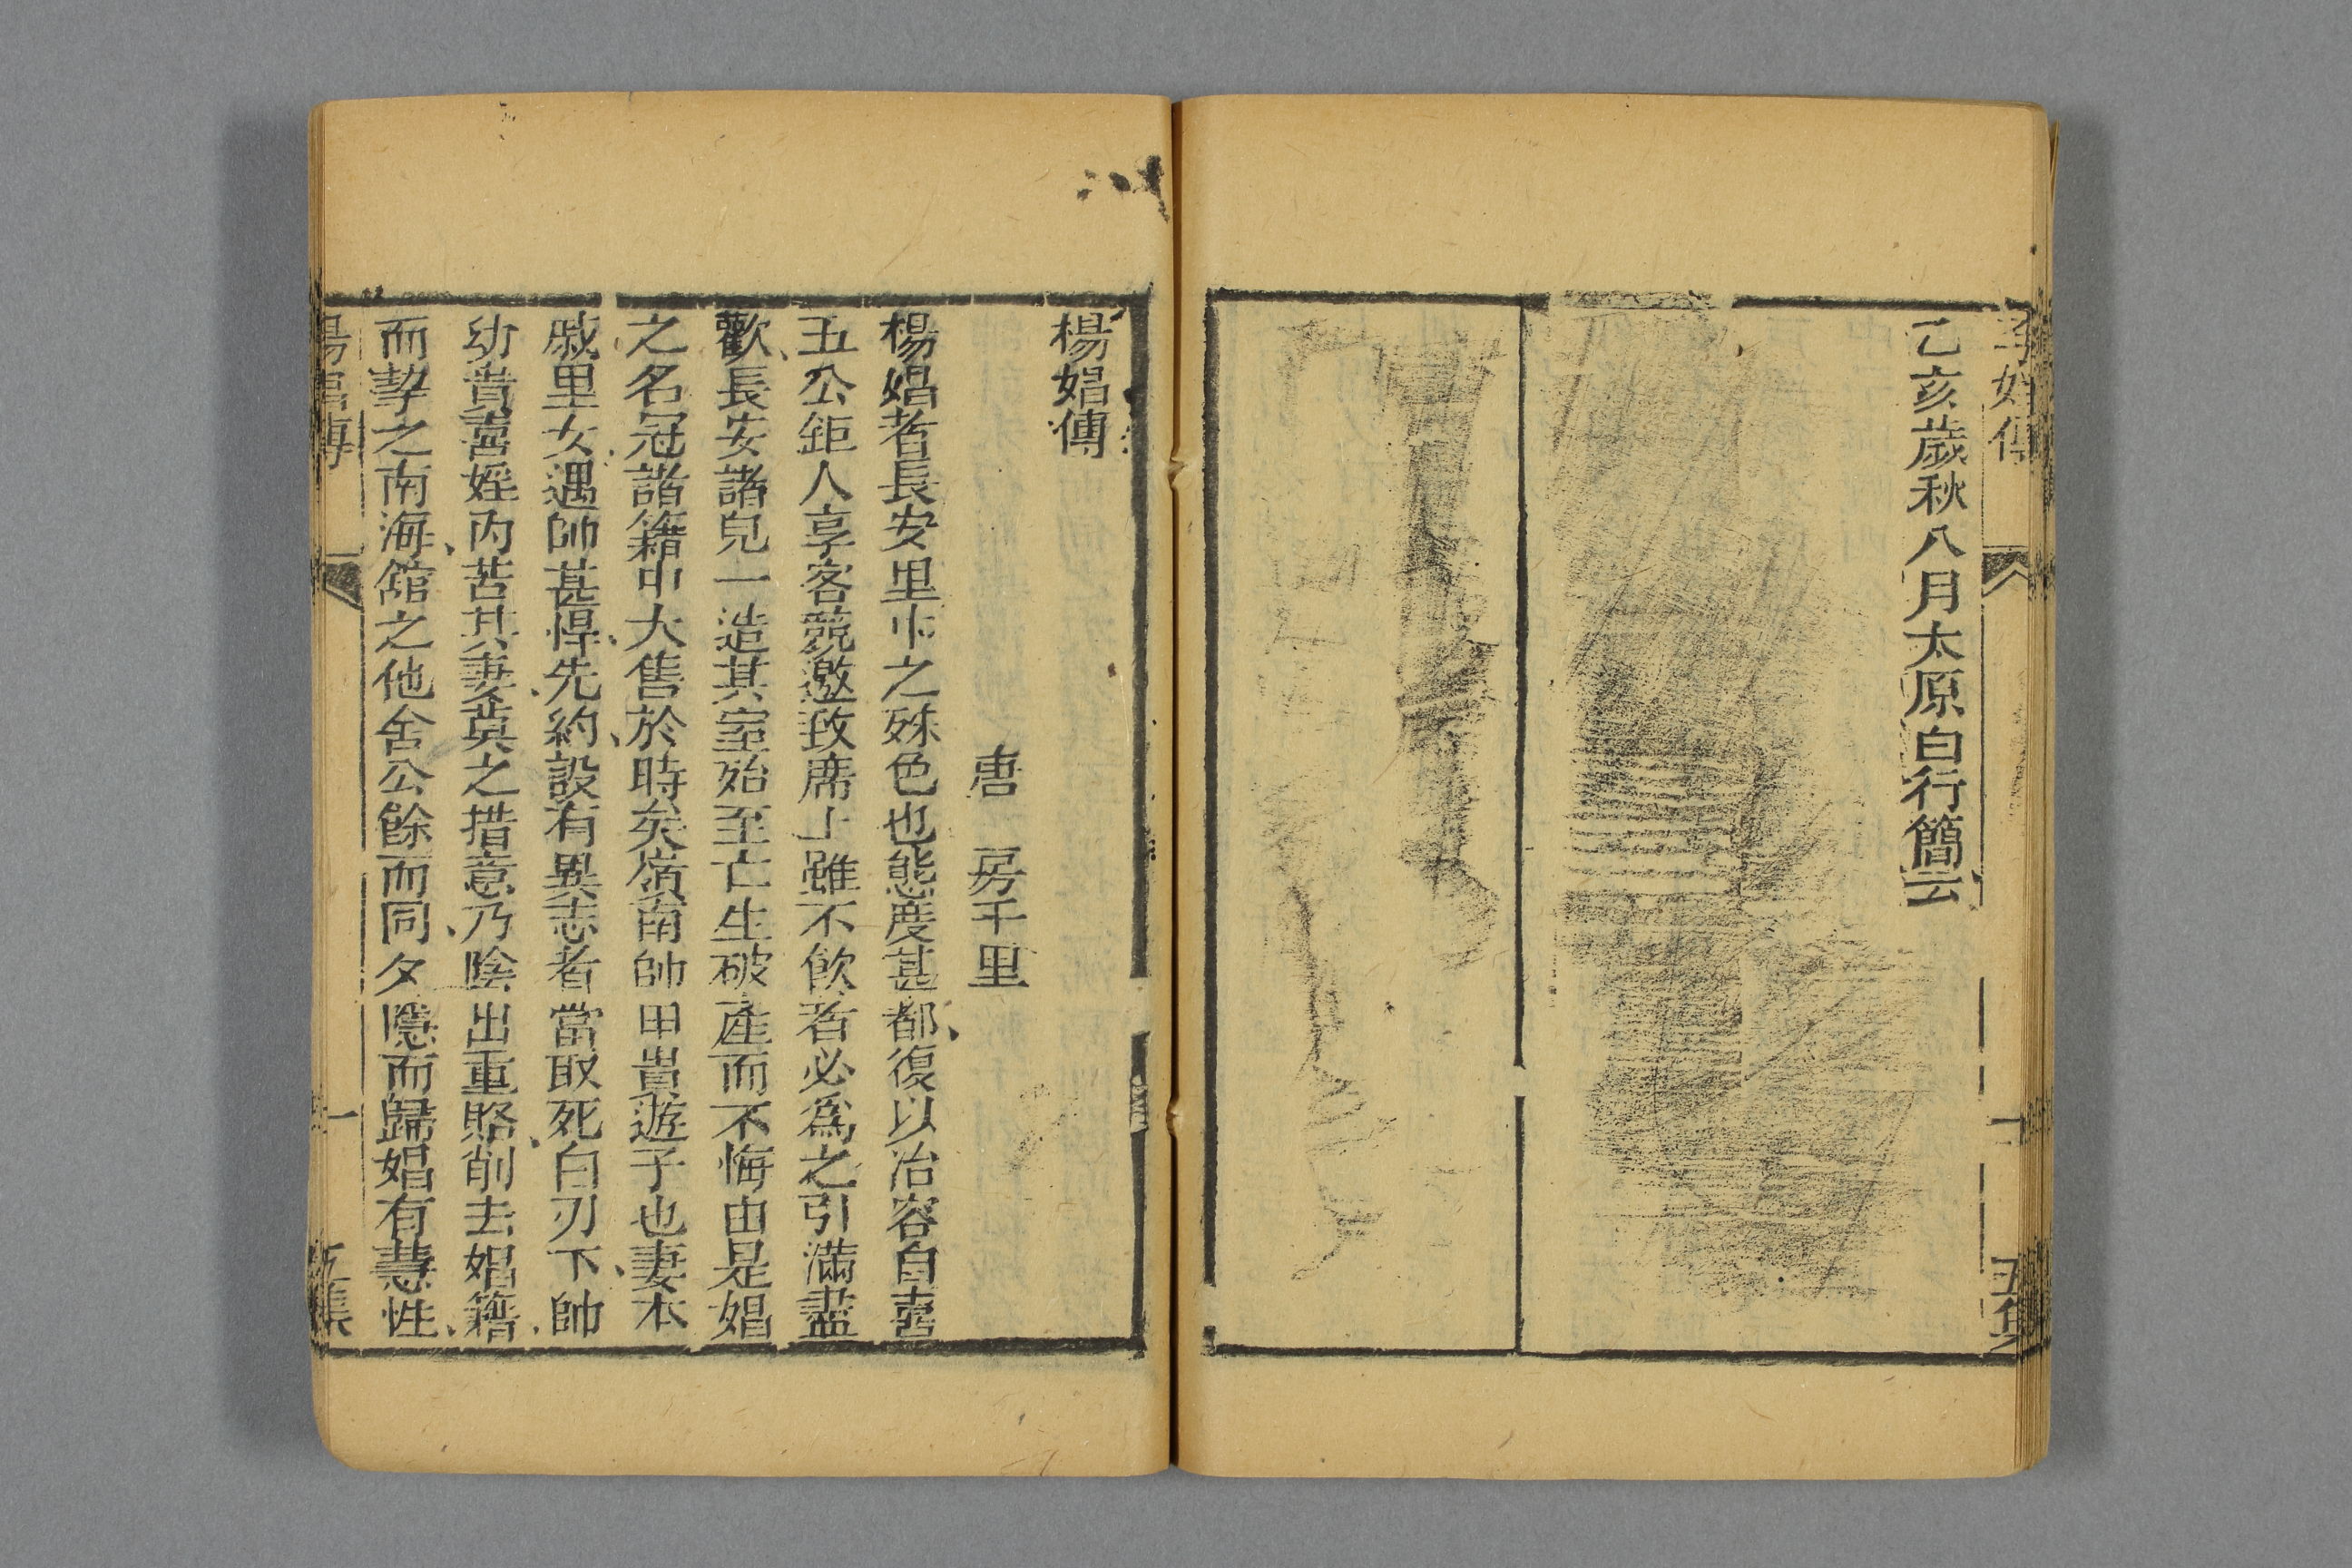 乙亥歲秋八月太原白行簡云
楊娼傳
唐 房千里
楊娼者長安里中之殊色也態度甚都復以冶容自喜
王公鉅人享客競邀致席上雖不飲者必爲之引滿盡
歡長安諸兒一造其室殆至亡生破產而不悔由是娼
之名冠諸籍中大售於時矣嶺南帥甲貴遊子也妻本
戚里女遇帥甚悍先約設有異志者當取死白刃下帥
幼貴喜婬內苦其妻莫之措意乃陰出重賂削去娼籍
而挈之南海館之他舍公餘而同夕隱而歸娼有慧性
楊娼傳 一 五集